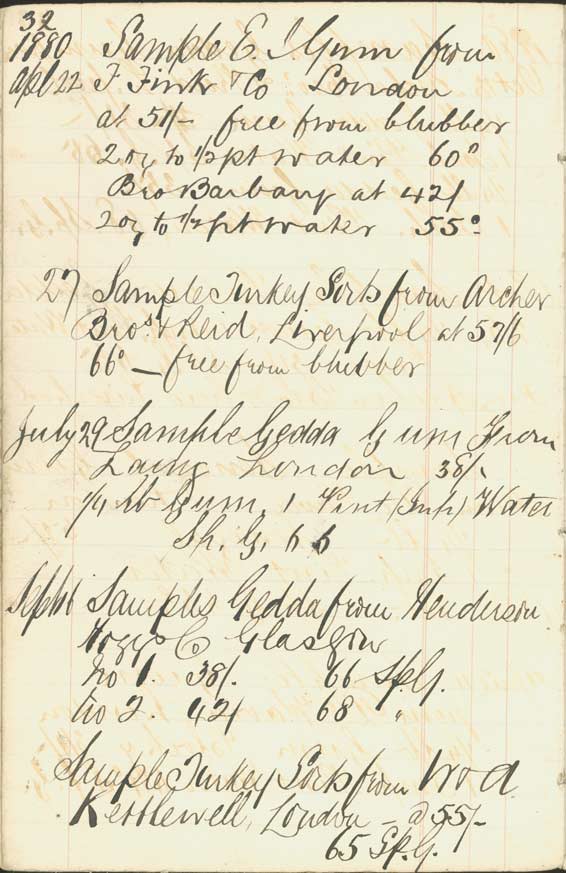 32
1880 Sample E. I. Gum from
Apl 22 F Fink & Co London
at 51/- free from blubber
2 oz to 1/2 pt water 60°
Bro Barbary at 42/
2 oz to 1/2 pt water 55°
27 Sample Turkey Sorts from Archer
Bros. & Reid, Liverpool at 57/6
66° — free from blubber
July 29 Sample Gedda Gum From
Laing London 38/-
1/4 lb Gum, 1 Pint (Imp) Water
Sp. G. 66
Sept 16 Samples Gedda from Henderson
Hogg & Co Glasgow
No 1. 38/. 66 Sp. G.
No 2. 42/ 68 "
Sample Turkey Sorts from
Kettlewell, London — @ 55/-
65 Sp. G.